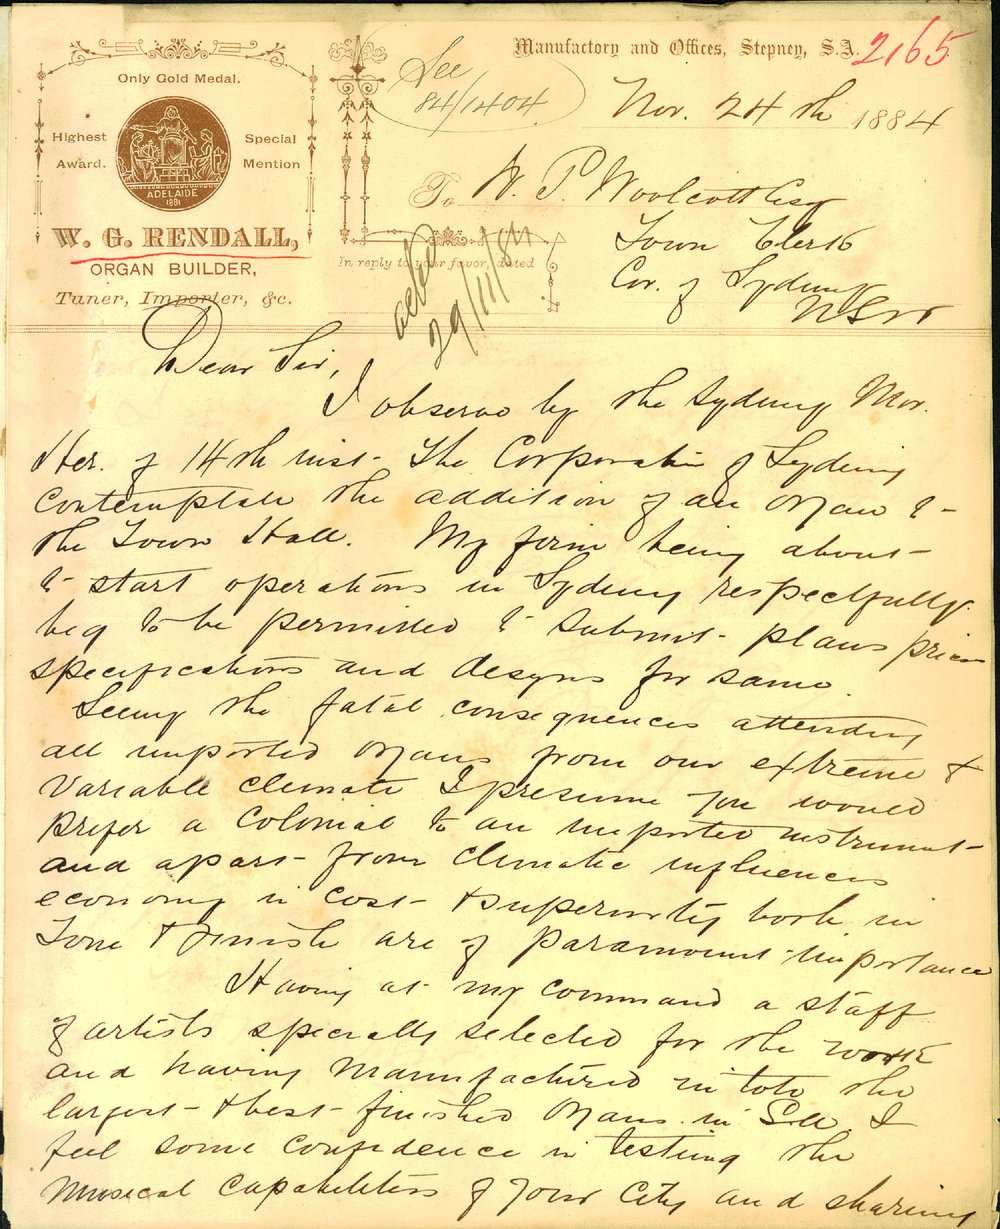 Only Gold Medal.
Highest Award.
Special Mention
ADELAIDE
1881
W. G. RENDALL,
ORGAN BUILDER,
Tuner, Importer, &c.
See
84/1404
Manufactory and Offices, Stepney, S.A.
2165
Nov. 24th 1884
To W. P. Woolcott Esq
Town Clerk
Cor. of Sydney
NSW
In reply to your favor, dated
ackd
29/11/84
Dear Sir,
I observe by the Sydney Mor.
Her. of 14th inst. The Corporation of Sydney
contemplate the addition of an organ to
the Town Hall. My firm being about
to start operations in Sydney respectfully
beg to be permitted to submit plans prices
specifications and designs for same.
Seeing the fatal consequences attending
all imported organs from our extreme &
variable climate I presume you would
prefer a Colonial to an imported instrument
and apart from climatic influences
economy in cost & superiority both in
Tone & finish are of paramount importance
Having at my command a staff
of artists specially selected for the work
and having manufactured in toto the
largest & best finished organs in S.A. I
feel some confidence in testing the
musical capabilities of your city and sharing